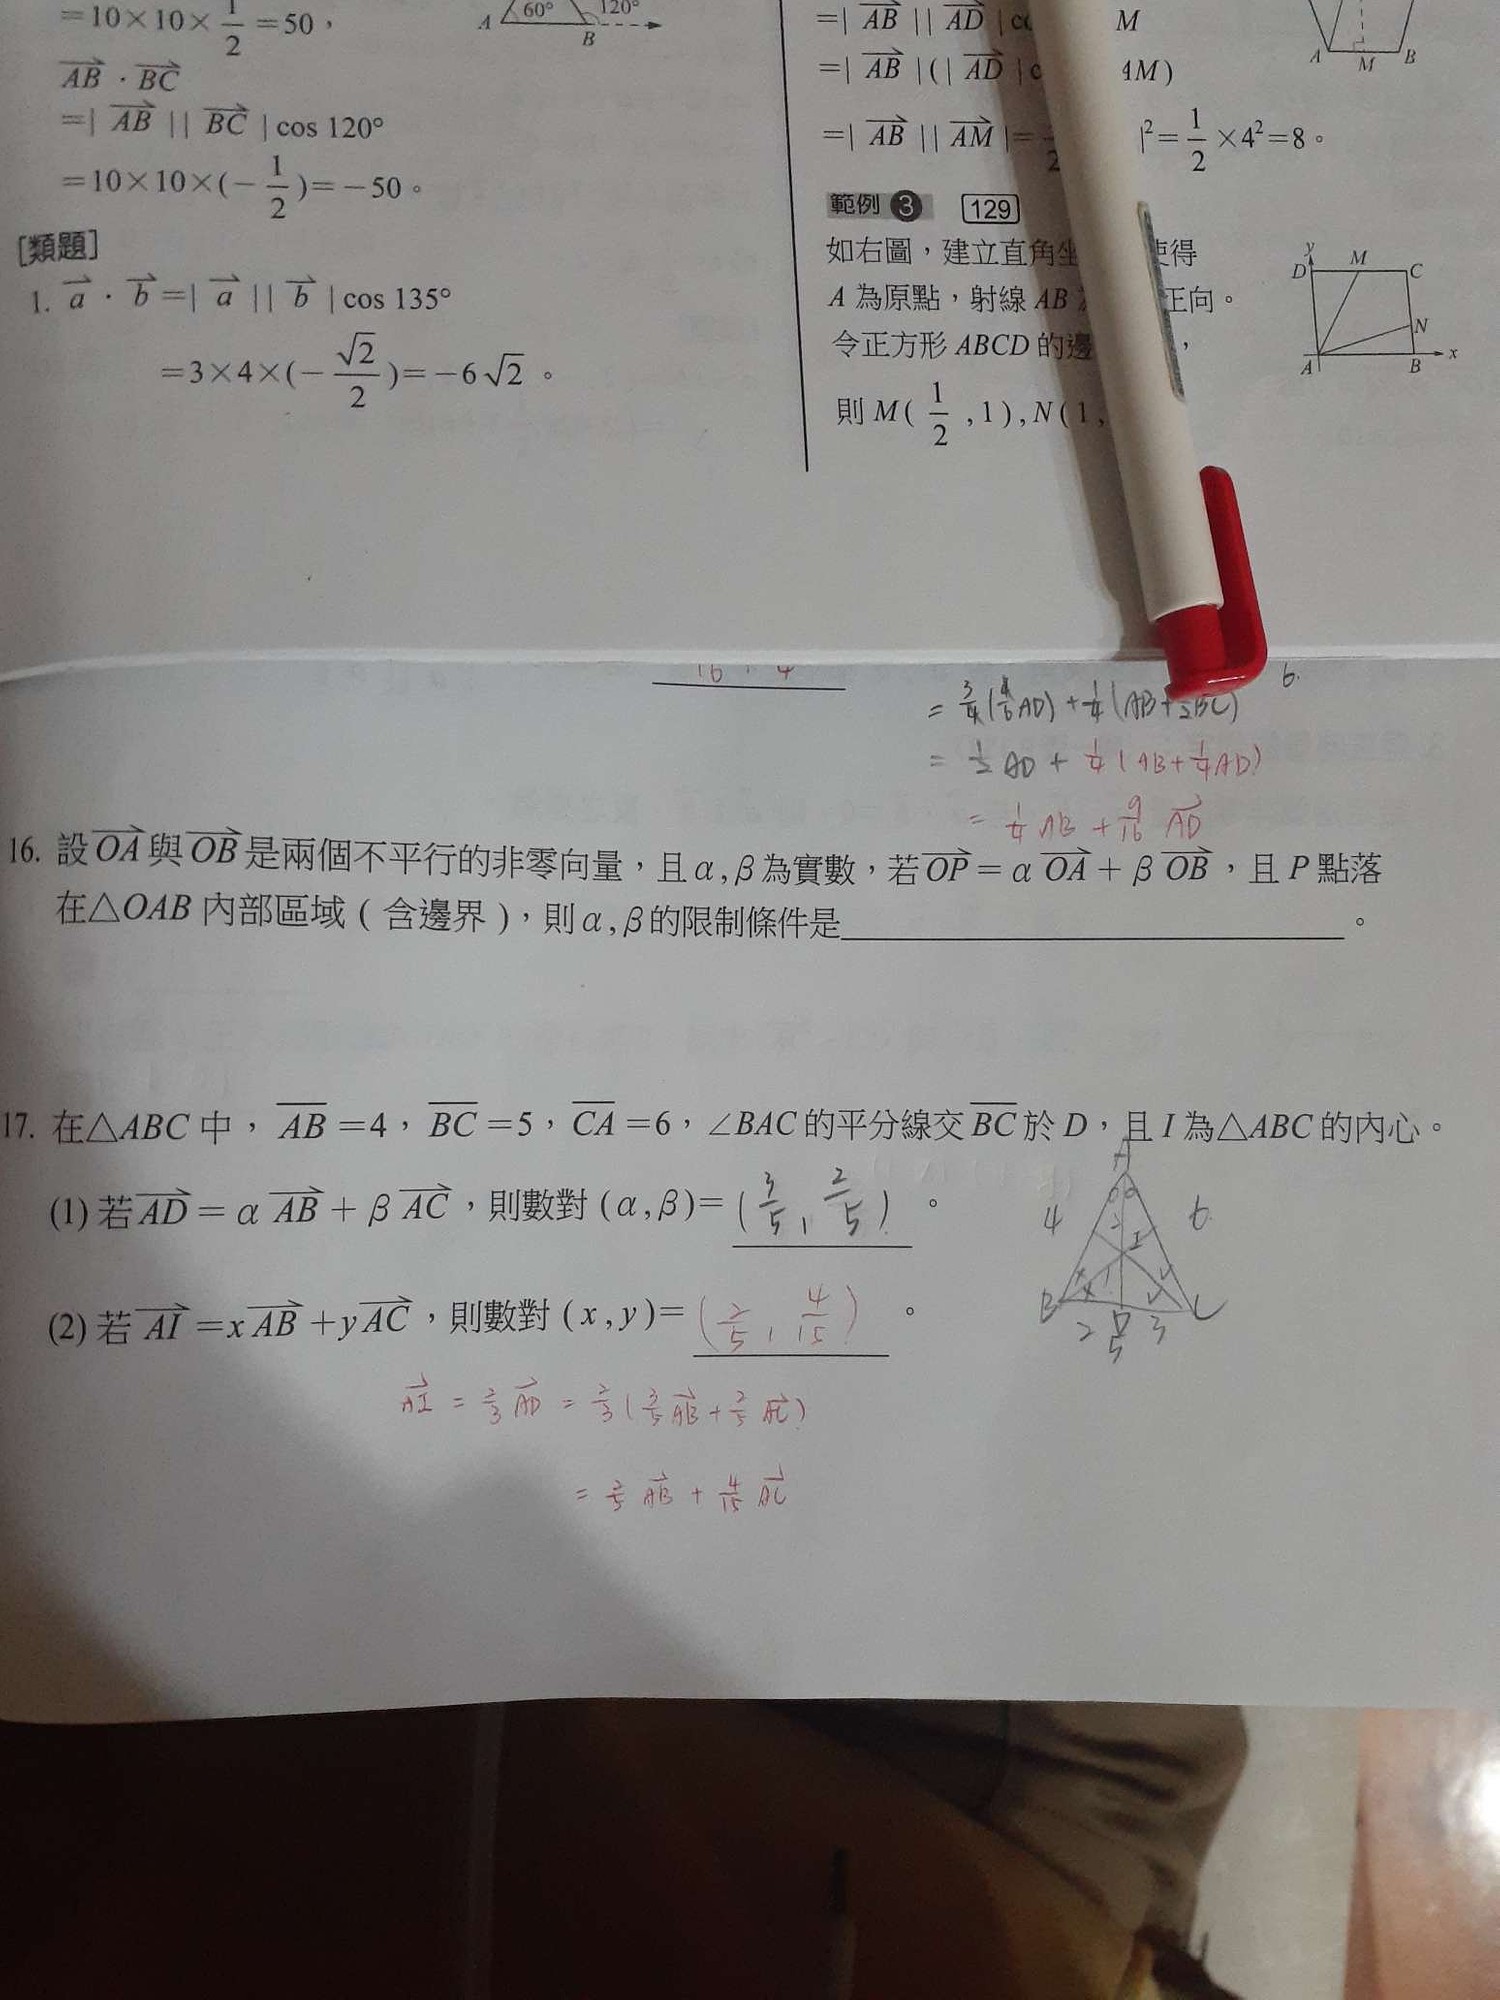 =10×10×1/2=50，
A 60° 120° B
AB⃗ · BC⃗
=| AB⃗ || BC⃗ | cos 120°
=10×10×(−1/2)=−50。
[類題]
1. a⃗ · b⃗ =| a⃗ || b⃗ | cos 135°
=3×4×(−√2/2)=−6√2 。
=| AB⃗ || AD⃗ | M
=| AB⃗ |(| AD⃗ | AM)
=| AB⃗ || AM⃗ |= |²=1/2×4²=8。
A M B
範例 3 129
如右圖，建立直角 使得
A 為原點，射線 AB 正向。
令正方形 ABCD 的邊 ，
則 M(1/2,1),N(1,
y D M C N A B x
=3/4( AD)+1/4(AB+1/2BC) 6.
=1/2 AD+1/4(AB+1/4AD)
=1/4 AB+9/16 AD⃗
16. 設OA⃗與OB⃗是兩個不平行的非零向量，且α,β為實數，若OP⃗=αOA⃗+βOB⃗，且P點落
在△OAB內部區域(含邊界)，則α,β的限制條件是 。
17. 在△ABC中，AB=4，BC=5，CA=6，∠BAC的平分線交BC於D，且I為△ABC的內心。
(1) 若AD⃗=αAB⃗+βAC⃗，則數對(α,β)=(3/5,2/5)。
(2) 若AI⃗=xAB⃗+yAC⃗，則數對(x,y)=(2/5,4/15)。
A 4 6 2 I 1 B D C 2 3 5
AI⃗=2/3AD⃗=2/3(3/5AB⃗+2/5AC⃗)
=2/5AB⃗+4/15AC⃗